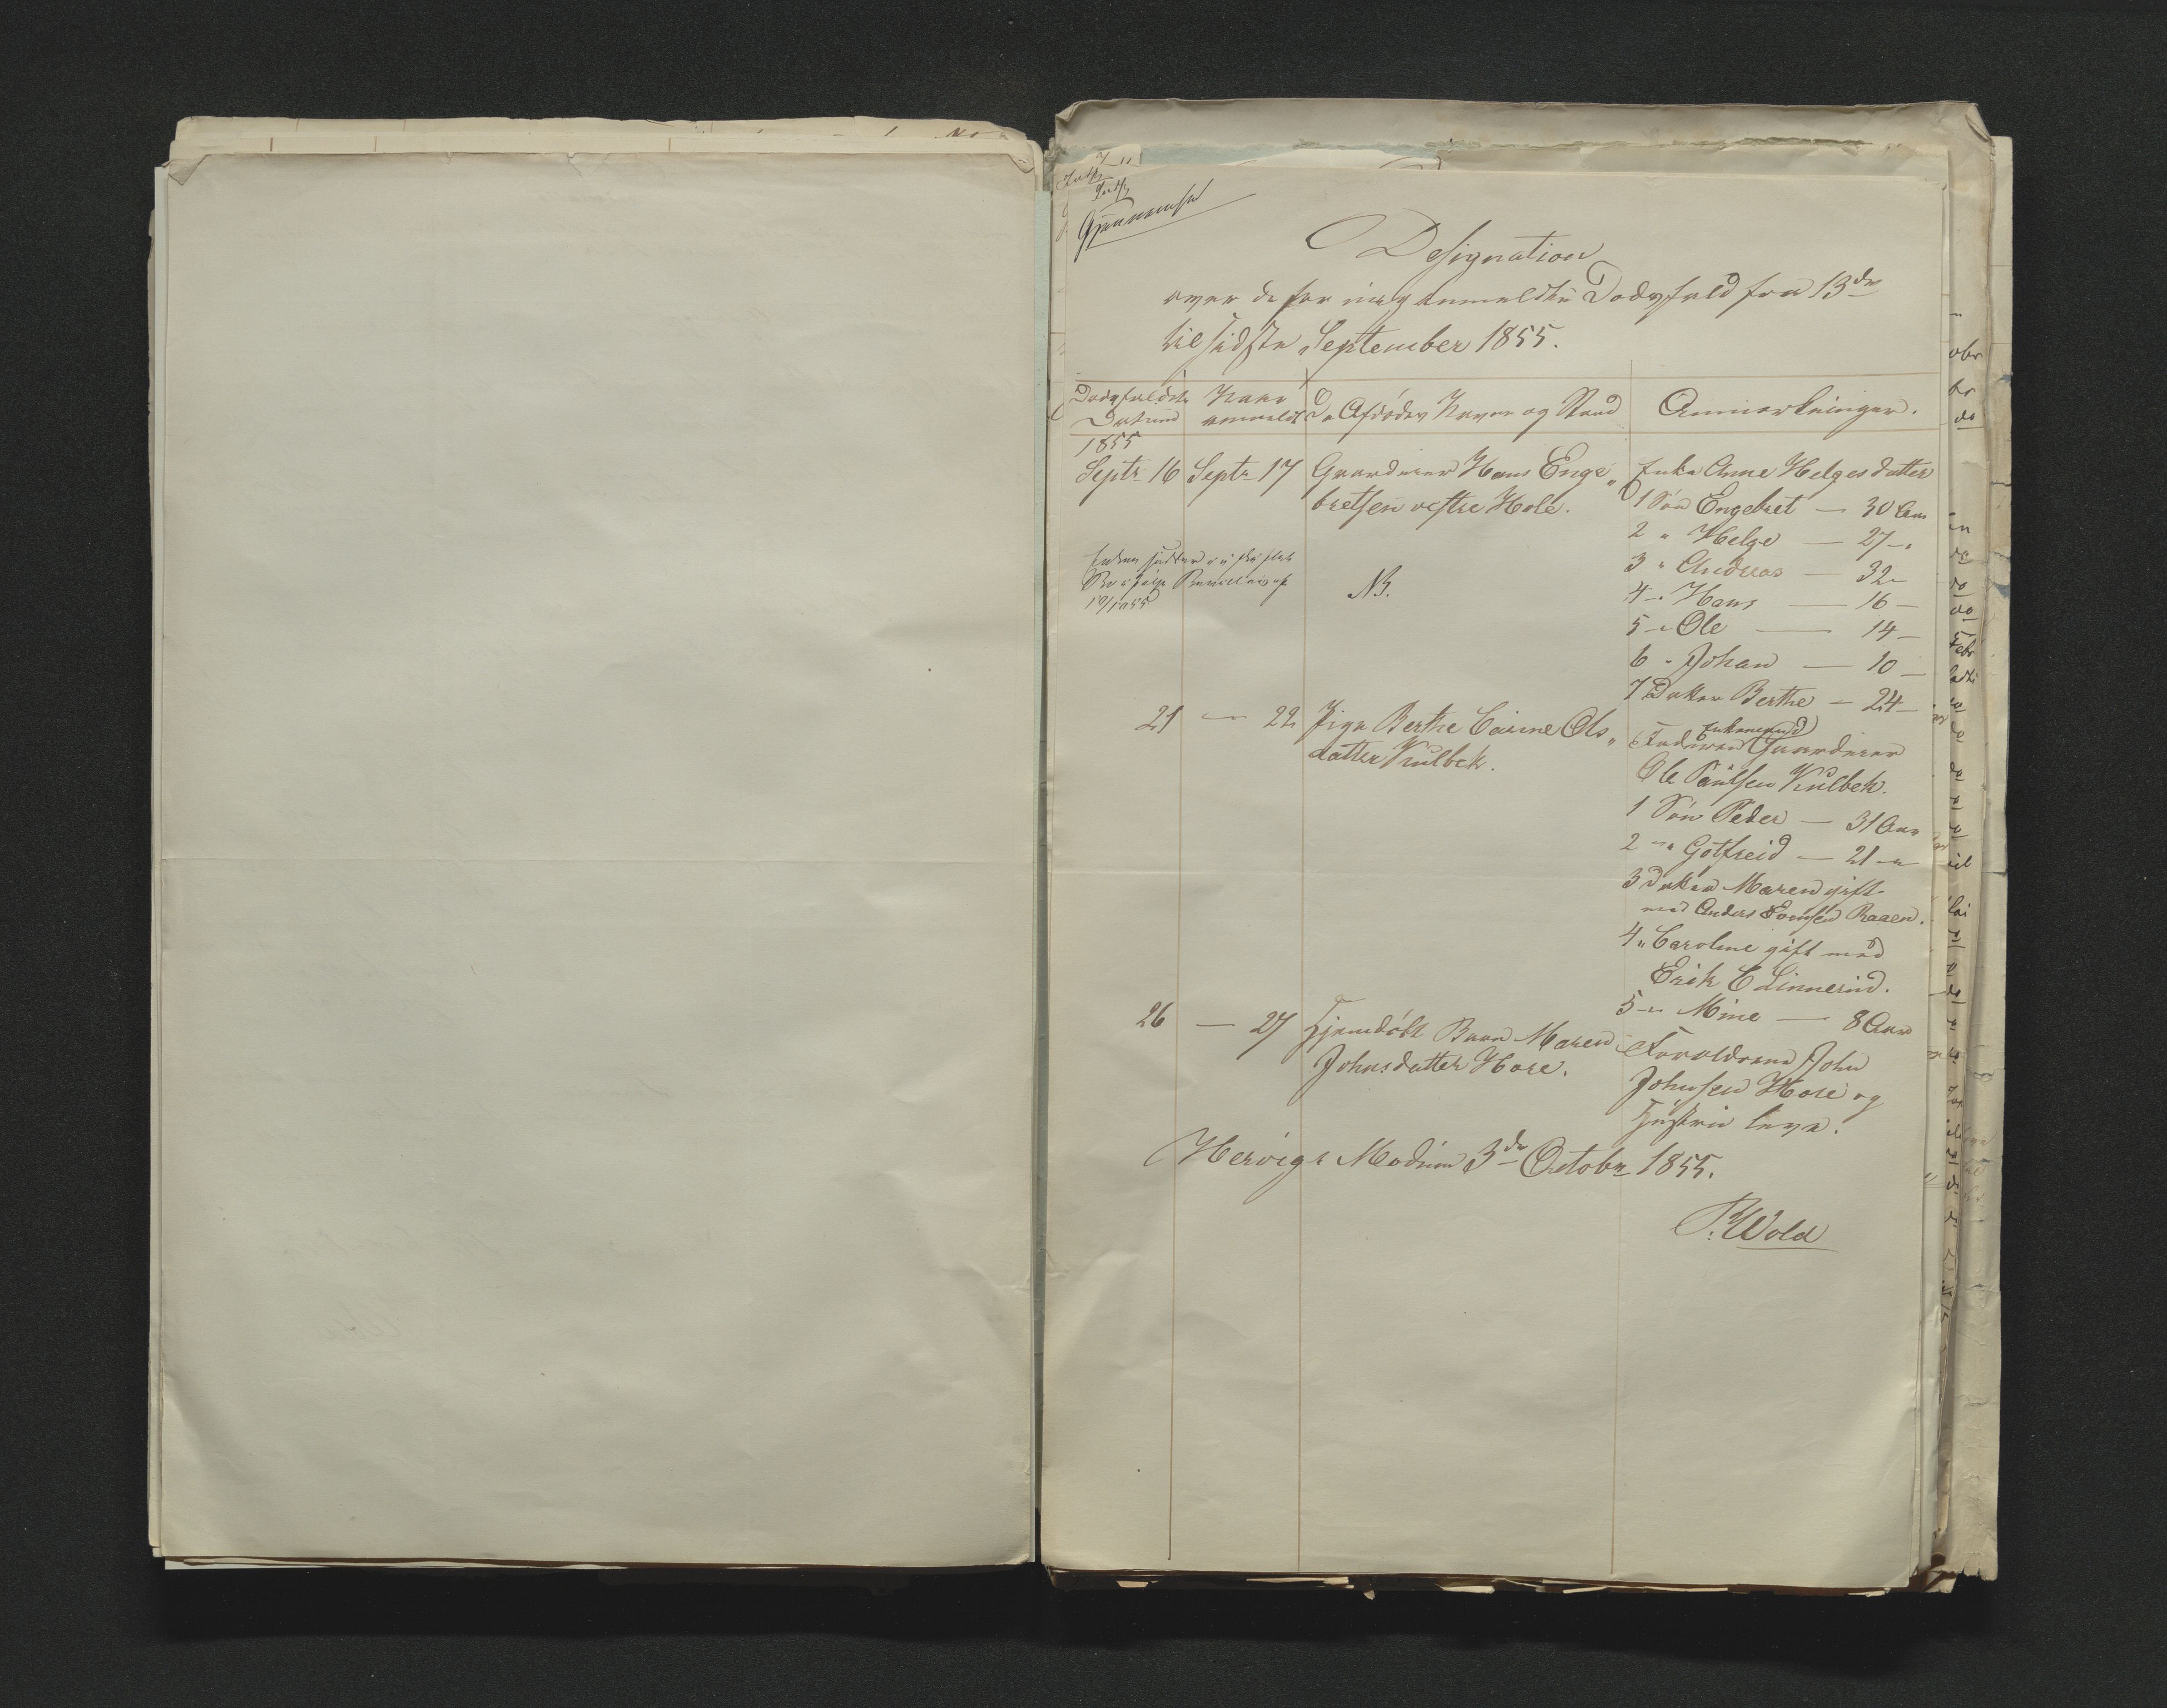 Gjennemseet
Designation
over de for mig anmeldte Dødsfald fra 13de
til sidste September 1855.
Dødsfaldets Datum
Naar anmeldt
De Afdødes Navne og Stand
Anmærkninger.
1855
Septr 16 Septr 17 Gaardmand Hans Enge
bretsen vestre Hole.
Enke Anne Helgesdatter
1 Søn Engebret — 30 Aar
2 " Helge — 27 — "
3 " Andreas — 32 —
4 — " Hans — 16 —
5 — " Ole — 14 —
6 " Johan — 10 —
7 Datter Berthe — 24 —
Enken sidder i uskiftet
Bo ifølge Bevilling af
1855
NB.
21 — 22 Pige Berthe Carine Ols
datter Kulbek.
Enkemand
Faderen Gaardmand
Ole Paulsen Kulbek.
1 Søn Peder — 31 Aar
2 — " Gotfreid — 21 — "
3 Datter Maren gift
med Anders Raaen.
4 " Caroline gift med
Erik C Linnerud.
5 — " Mine — 8 Aar
26 — 27 Hjemdøbt Barn Maren
Johnsdatter Hore.
Forældrene John
Johnsen Hore og
Hustru leve.
Hervigs Modum 3de Octobr 1855.
P. Wold